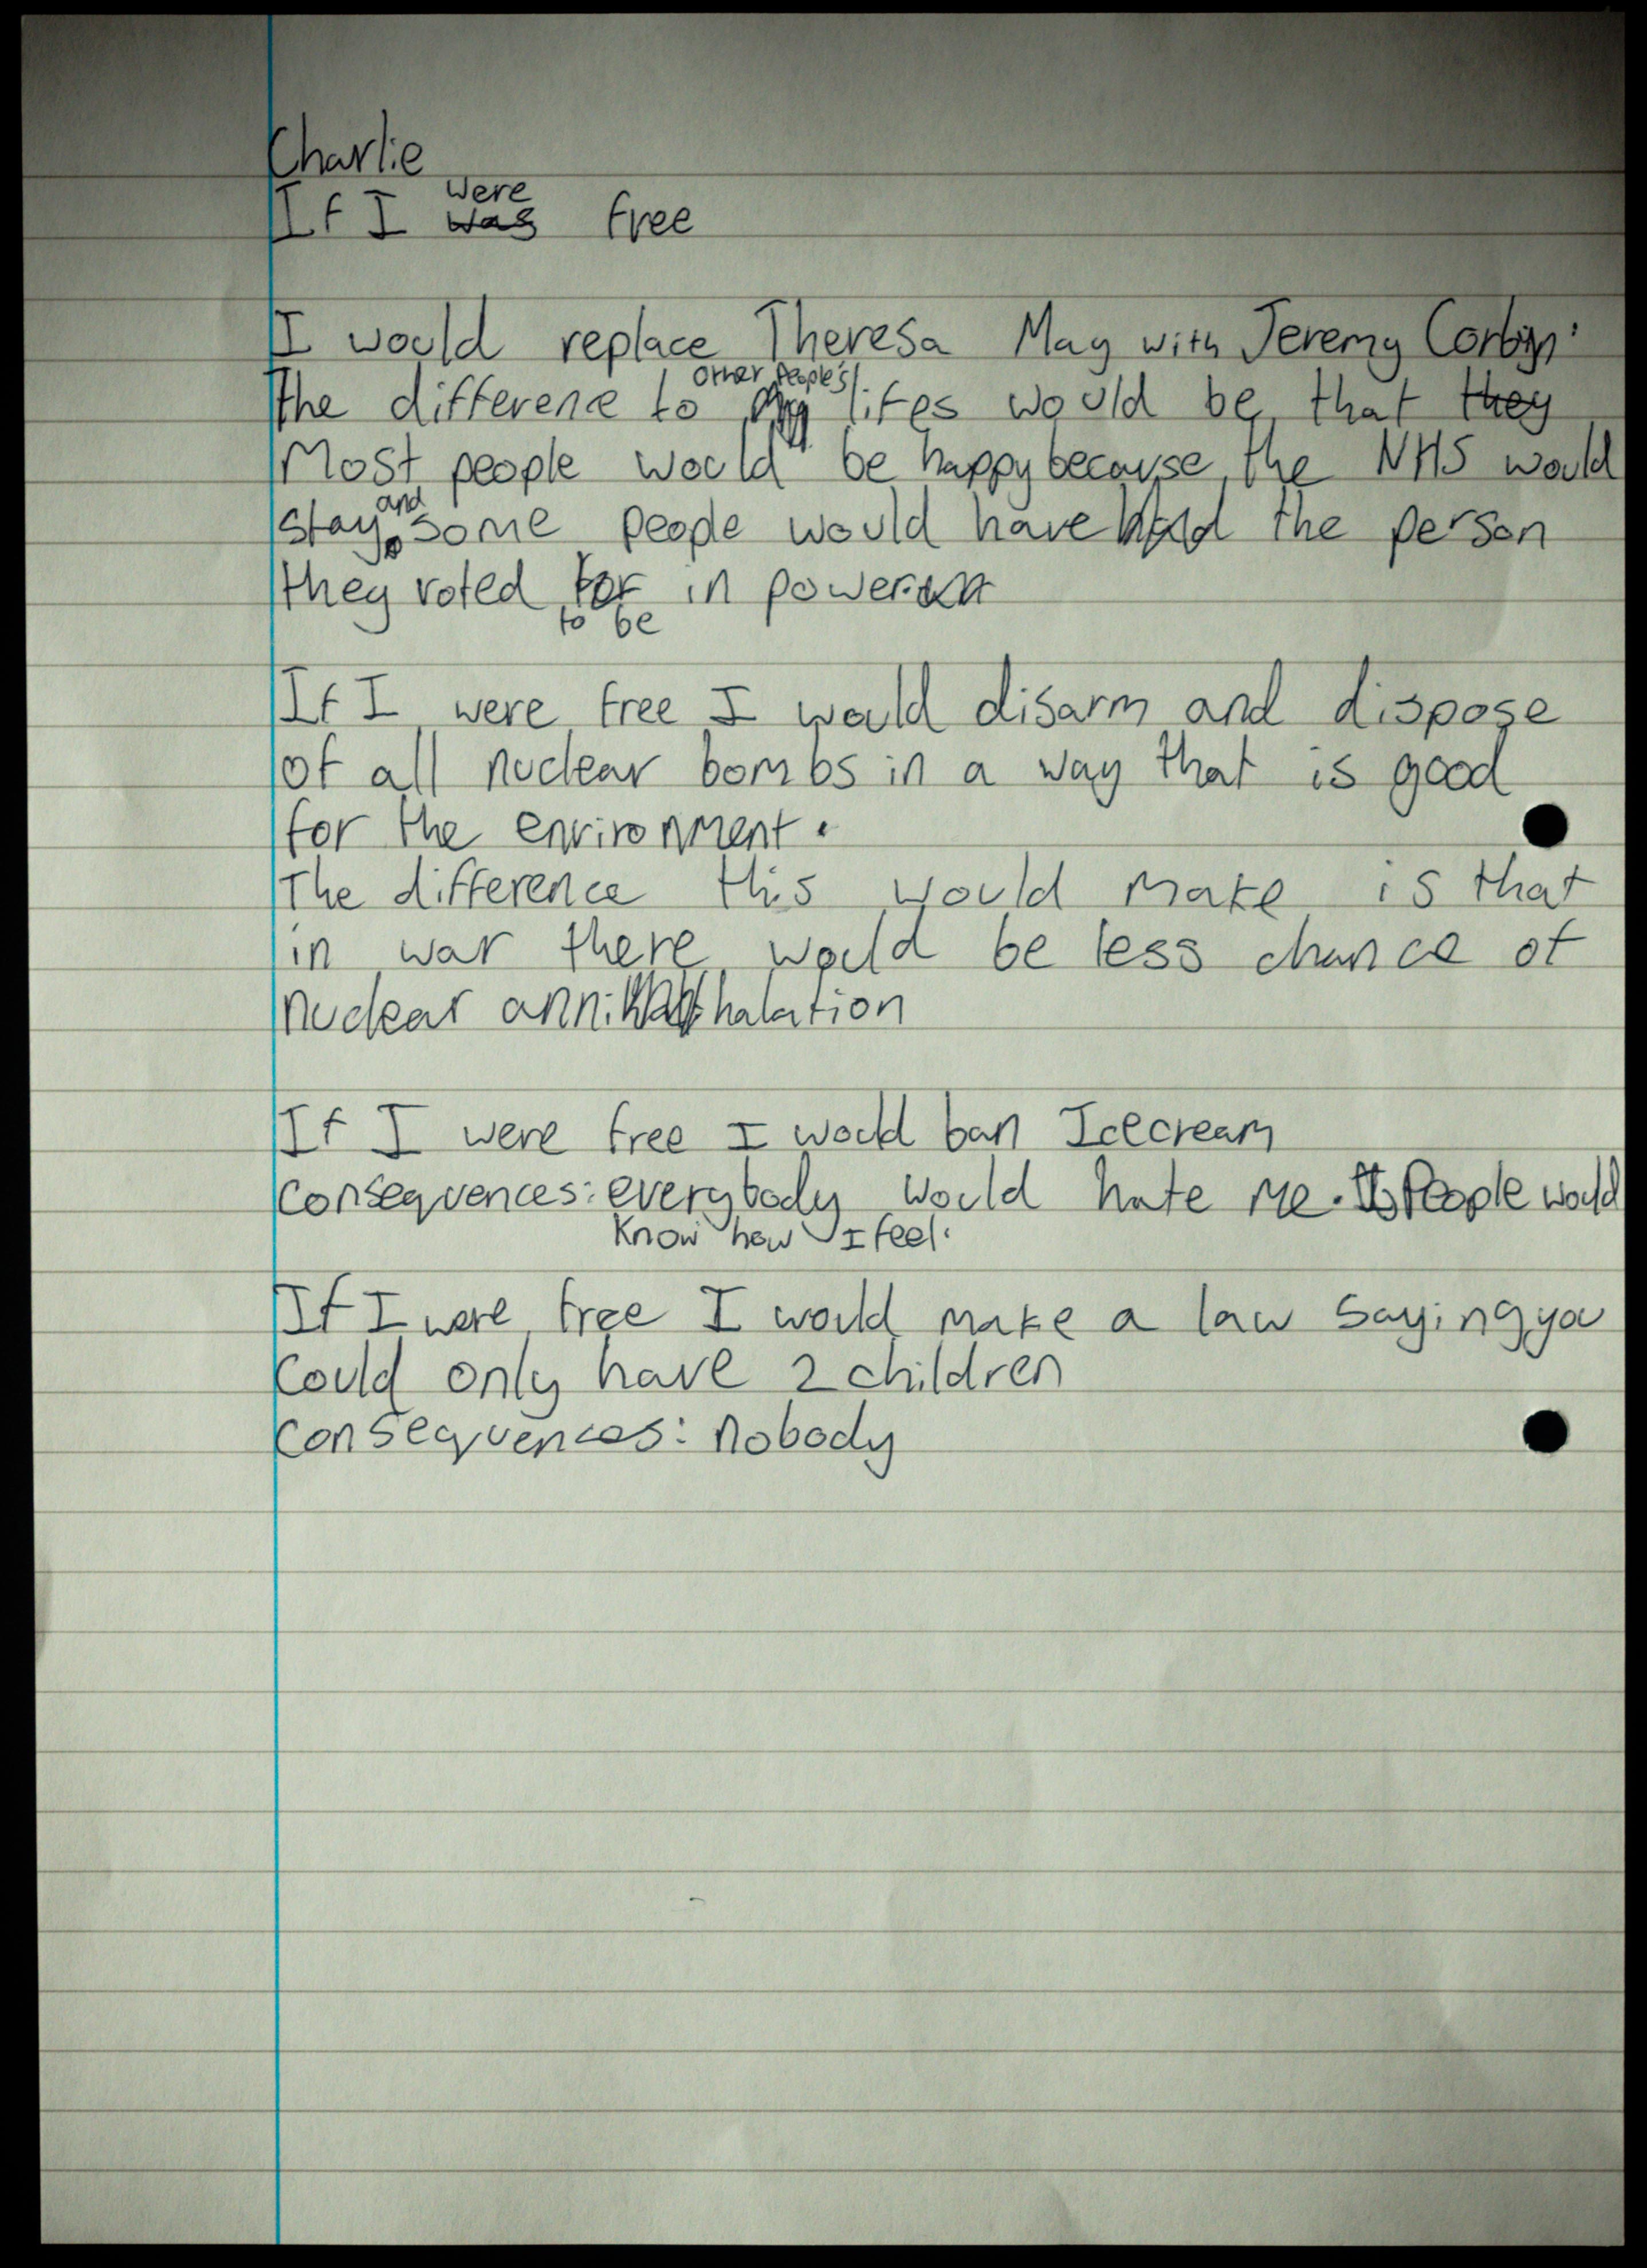 Charlie
If I were was free
I would replace Theresa May with Jeremy Corbyn.
other people's
The difference to lifes would be that they
Most people would be happy because the NHS would
and
stay some people would have the person
they voted for in power.
to be
If I were free I would disarm and dispose
of all nuclear bombs in a way that is good
for the environment.
The difference this would make is that
in war there would be less chance of
nuclear annihalation
If I were free I would ban Icecream
consequences: everybody would hate me. People would
know how I feel.
If I were free I would make a law saying you
could only have 2 children
consequences: nobody